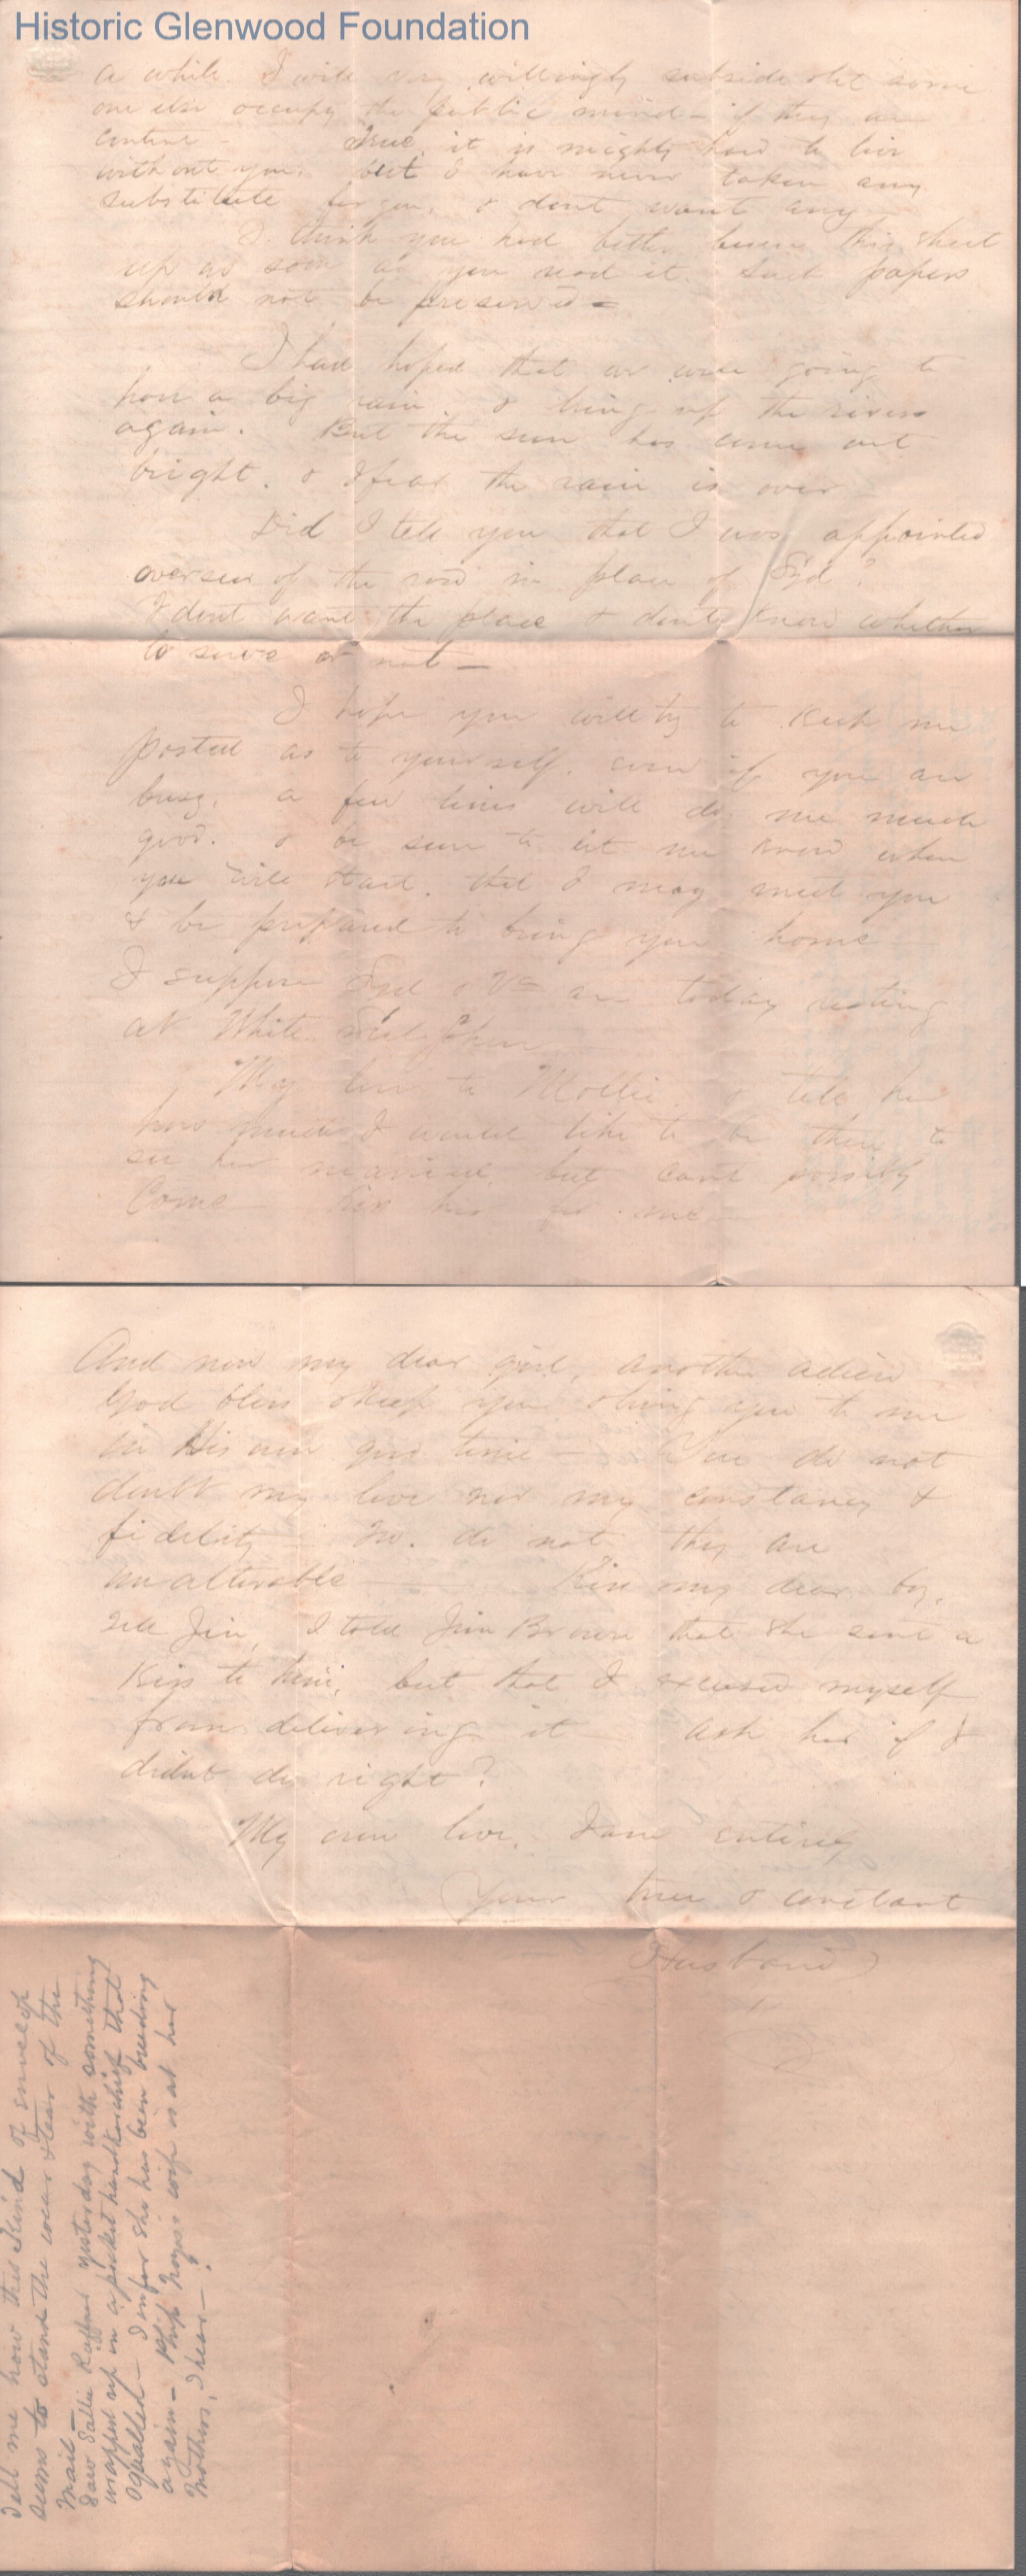 Historic Glenwood Foundation
a while. I will very willingly subside & let some
one else occupy the public mind – if they are
content – True, it is mighty hard to live
without you, but I have never taken any
substitute for you, & dont want any
I think you had better burn this sheet
up as soon as you read it. Such papers
should not be preserved –
I had hoped that we were going to
have a big rain, & bring up the rivers
again. But the sun has come out
bright, & I fear the rain is over –
Did I tell you that I was appointed
overseer of the road in place of Syd?
I dont want the place & dont know whether
to serve or not –
I hope you will try to keep me
posted as to yourself, even if you are
busy, a few lines will do me much
good. & be sure to let me know when
you will start, that I may meet you
& be prepared to bring you home –
I suppose Syd & Va are today resting
at White Sul Spher
My love to Mollie, & tell her
how much I would like to be there to
see her married, but cant possibly
Come – Kiss her for me –
And now my dear girl, another adieu –
God bless & keep you & bring you to me
in His own good time – You do not
doubt my love nor my constancy &
fidelity – No. do not they are
unalterable – Kiss my dear boy,
Tell Jin, I told Jim Brown that she sent a
Kiss to him, but that I excused myself
from delivering it – ask her if I
didnt do right?
My own love, I am entirely
Your true & constant
Husband
Tell me how this kind of envelop
seems to stand the wear & tear of the
mail –
Saw Sallie Ruffner yesterday with something
wrapped up in a pocket handkerchief that
squalled – I infer she has been breeding
again – Phip Noyes wife is at her
Mothers, I hear –